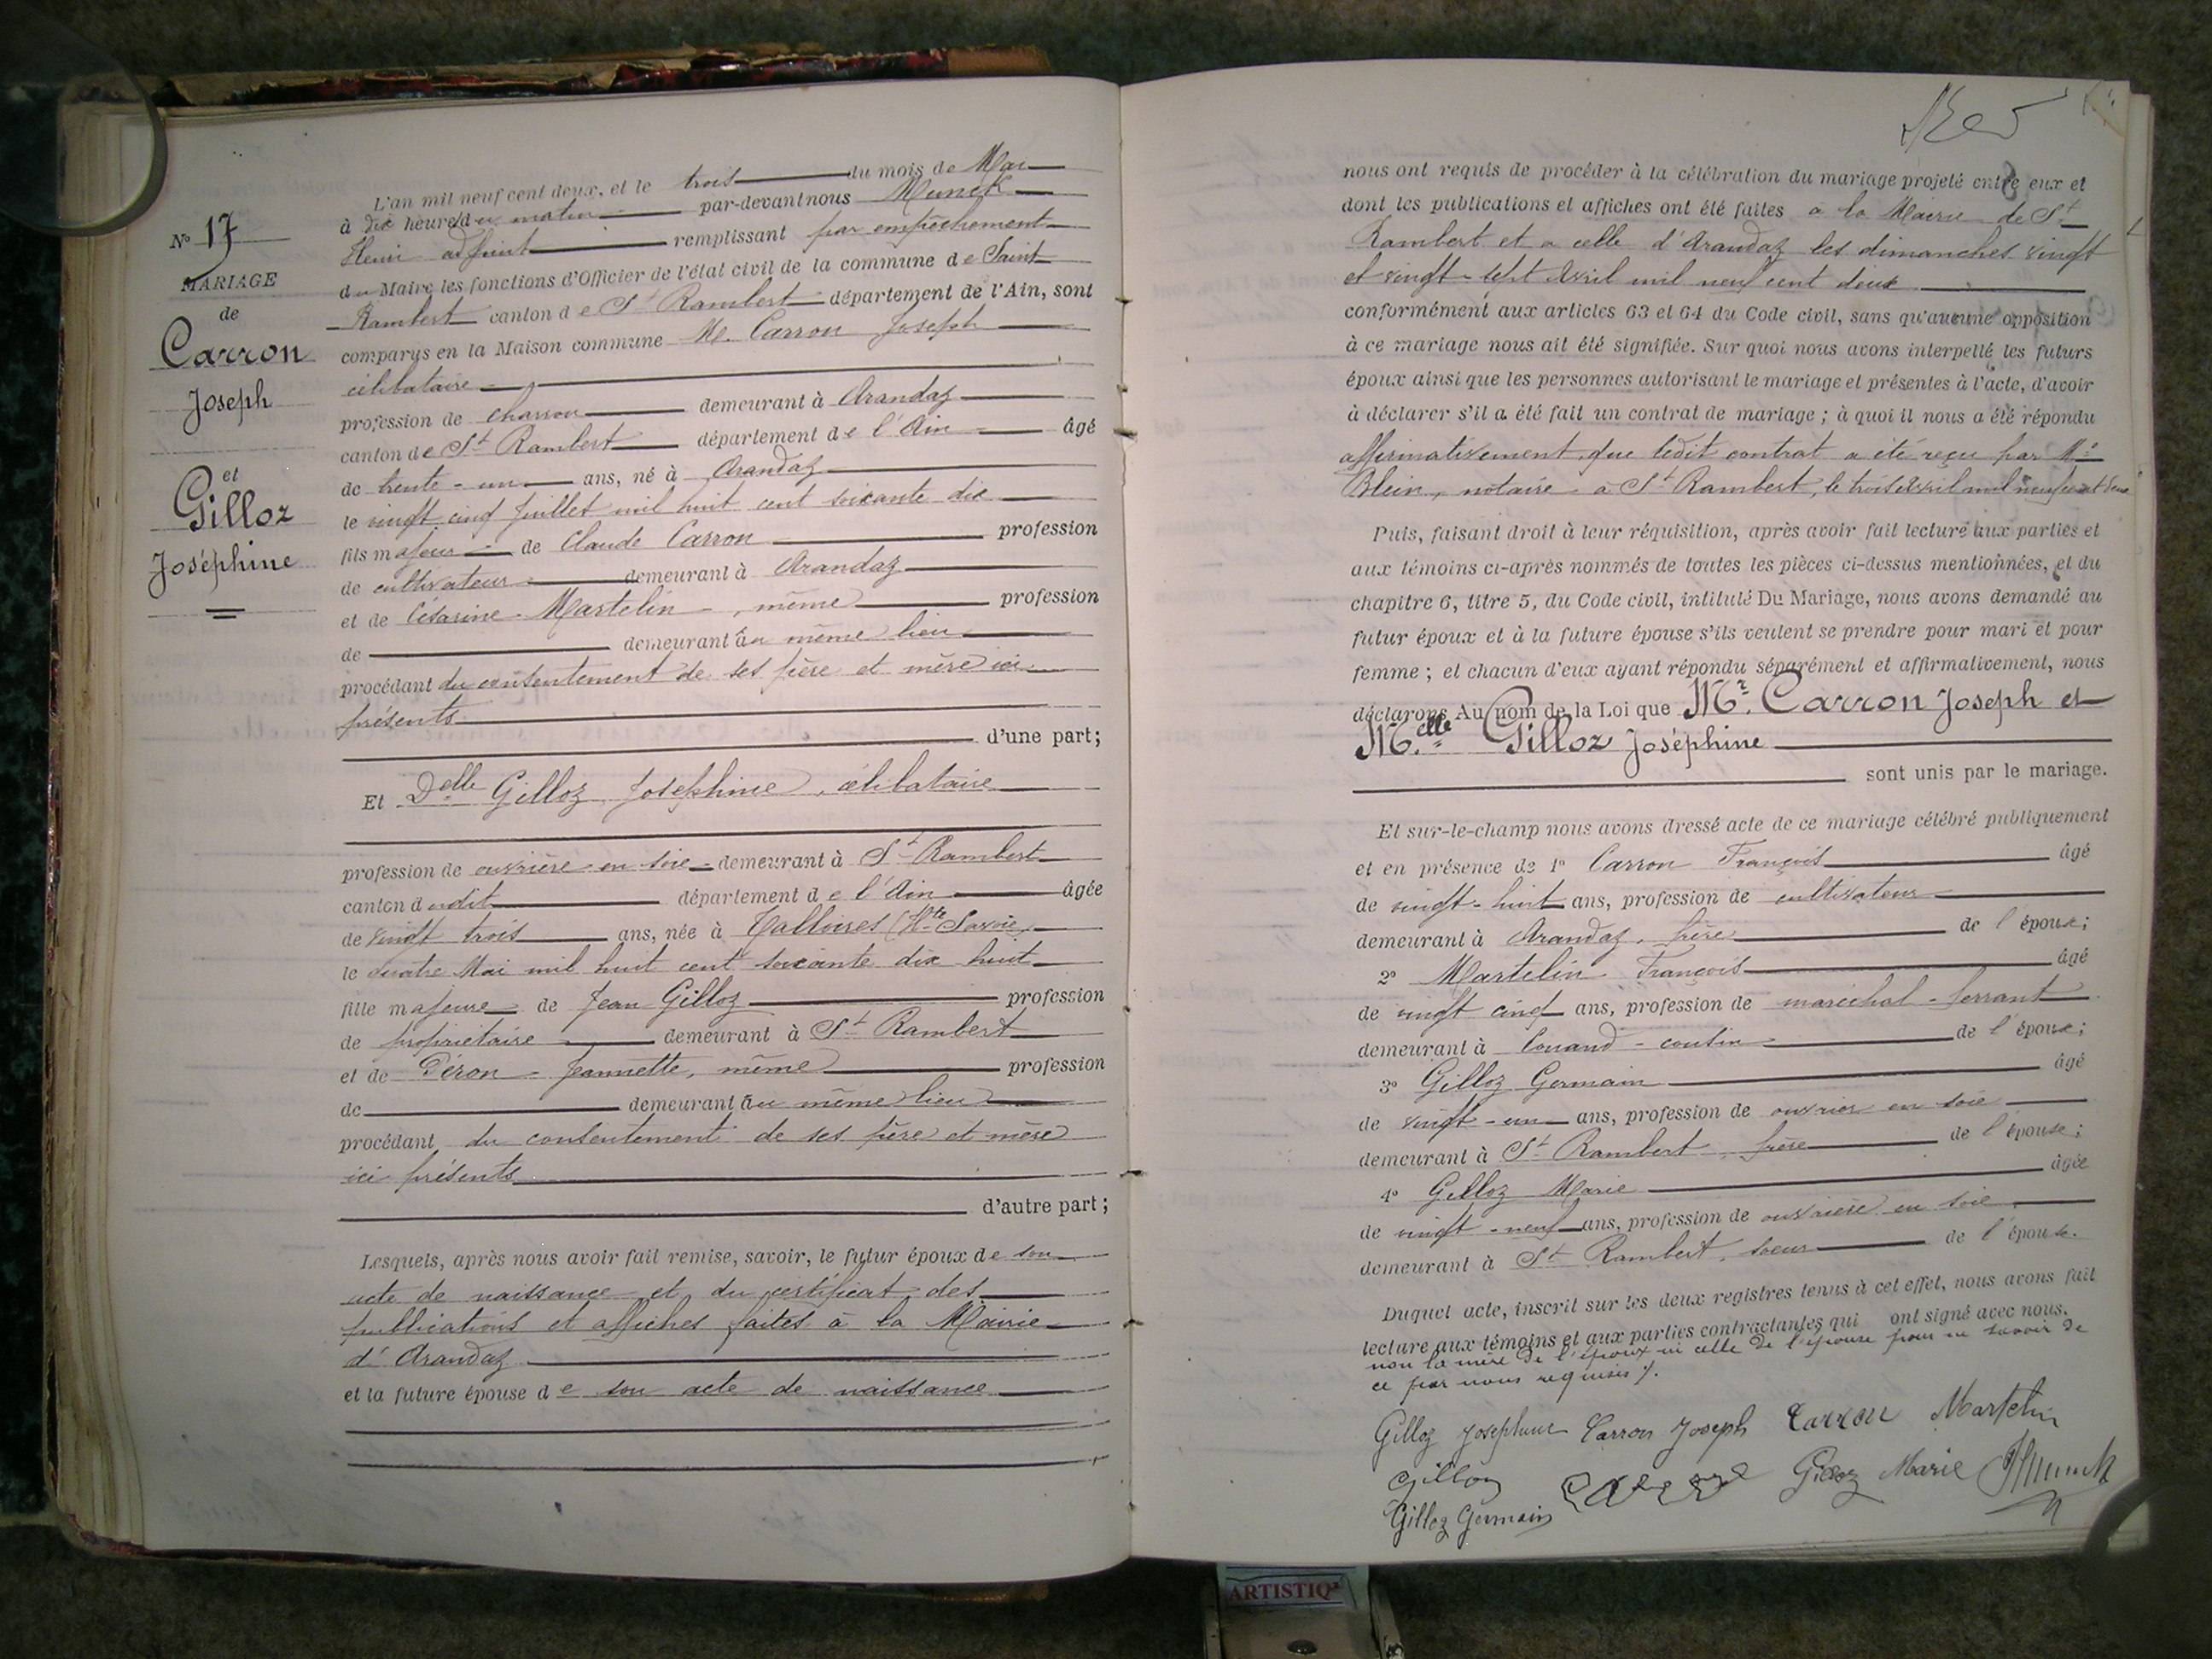 N° 17
MARIAGE
de
Carron
Joseph
et
Gilloz
Joséphine
L'an mil neuf cent deux, et le trois du mois de Mai
à dix heures du matin par-devant nous Munck
Henri adjoint remplissant par empêchement
du Maire les fonctions d'Officier de l'état civil de la commune de Saint
Rambert canton de St Rambert département de l'Ain, sont
comparus en la Maison commune M. Carron Joseph
célibataire
profession de charron demeurant à Arandaz
canton de St Rambert département de l'Ain âgé
de trente-un ans, né à Arandaz
le vingt cinq Juillet mil huit cent soixante dix
fils majeur de Claude Carron profession
de cultivateur demeurant à Arandaz
et de Césarine Martelin, même profession
de demeurant au même lieu
procédant du consentement de ses père et mère ici
présents
d'une part;
Et Delle Gilloz Joséphine, célibataire
profession de ouvrière en soie demeurant à St Rambert
canton dudit département de l'Ain âgée
de vingt trois ans, née à Talloires (Hte Savoie)
le quatre Mai mil huit cent soixante dix huit
fille majeure de Jean Gilloz profession
de propriétaire demeurant à St Rambert
et de Péron Jeannette, même profession
de demeurant au même lieu
procédant du consentement de ses père et mère
ici présents
d'autre part;
Lesquels, après nous avoir fait remise, savoir, le futur époux de son
acte de naissance et du certificat des
publications et affiches faites à la Mairie
d'Arandaz
et la future épouse de son acte de naissance
nous ont requis de procéder à la célébration du mariage projeté entre eux et
dont les publications et affiches ont été faites à la Mairie de St
Rambert et à celle d'Arandaz les dimanches vingt
et vingt-sept Avril mil neuf cent deux
conformément aux articles 63 et 64 du Code civil, sans qu'aucune opposition
à ce mariage nous ait été signifiée. Sur quoi nous avons interpellé les futurs
époux ainsi que les personnes autorisant le mariage et présentes à l'acte, d'avoir
à déclarer s'il a été fait un contrat de mariage; à quoi il nous a été répondu
affirmativement que ledit contrat a été reçu par Me
Blein, notaire à St Rambert, le trois Avril mil neuf cent deux
Puis, faisant droit à leur réquisition, après avoir fait lecture aux parties et
aux témoins ci-après nommés de toutes les pièces ci-dessus mentionnées, et du
chapitre 6, titre 5, du Code civil, intitulé Du Mariage, nous avons demandé au
futur époux et à la future épouse s'ils veulent se prendre pour mari et pour
femme; et chacun d'eux ayant répondu séparément et affirmativement, nous
déclarons Au nom de la Loi que Mr. Carron Joseph et
M.elle Gilloz Joséphine
sont unis par le mariage.
Et sur-le-champ nous avons dressé acte de ce mariage célébré publiquement
et en présence de 1° Carron François âgé
de vingt-huit ans, profession de cultivateur
demeurant à Arandaz, frère de l'époux;
2° Martelin François âgé
de vingt cinq ans, profession de maréchal-ferrant
demeurant à Conand - cousin de l'époux;
3° Gilloz Germain âgé
de vingt-un ans, profession de ouvrier en soie
demeurant à St Rambert, frère de l'épouse;
4° Gilloz Marie âgée
de vingt-neuf ans, profession de ouvrière en soie
demeurant à St Rambert, soeur de l'épouse.
Duquel acte, inscrit sur les deux registres tenus à cet effet, nous avons fait
lecture aux témoins et aux parties contractantes qui ont signé avec nous.
non la mère de l'époux ni celle de l'épouse pour ne savoir de
ce par nous requises ./.
Gilloz Josephine Carron Joseph Carron Martelin
Gilloz Gilloz Marie HMunck
Gilloz Germain
ARTISTIQ